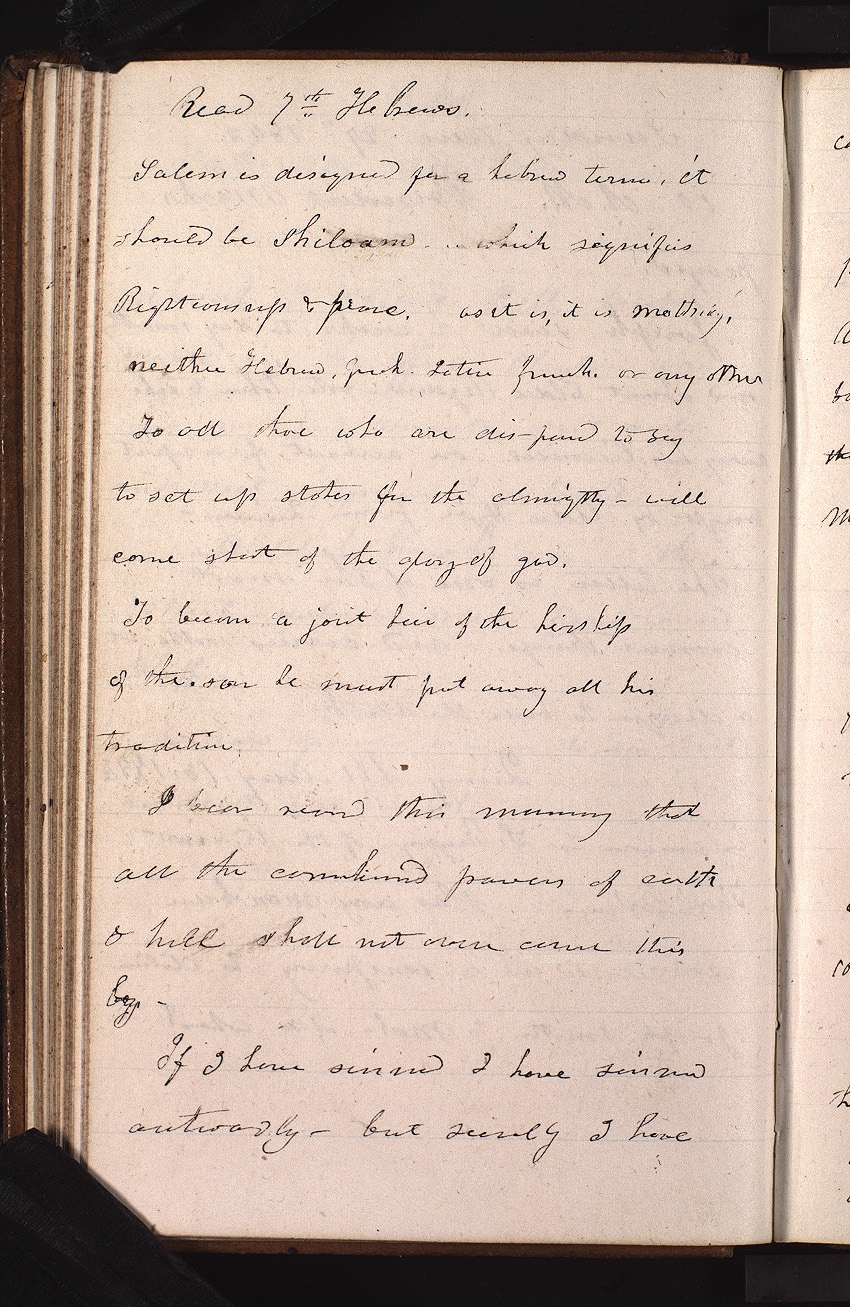 Read 7th Hebrews.
Salem is designed for a hebrew term. it
should be Shiloam which signifies
Righteousness & peace. as it is, it is nothing,
neither Hebrew, Greek. Latin french. or any other
To all those who are disposed to say
to set up stakes for the almighty - will
come short of the glory of god.
To becom a joint heir of the heirship
of the son he must put away all his
tradition.
I bear record this morning that
all the combined powers of earth
& hell shall not over come this
boy -
If I have sinned I have sinned
outwardly - but surely I have